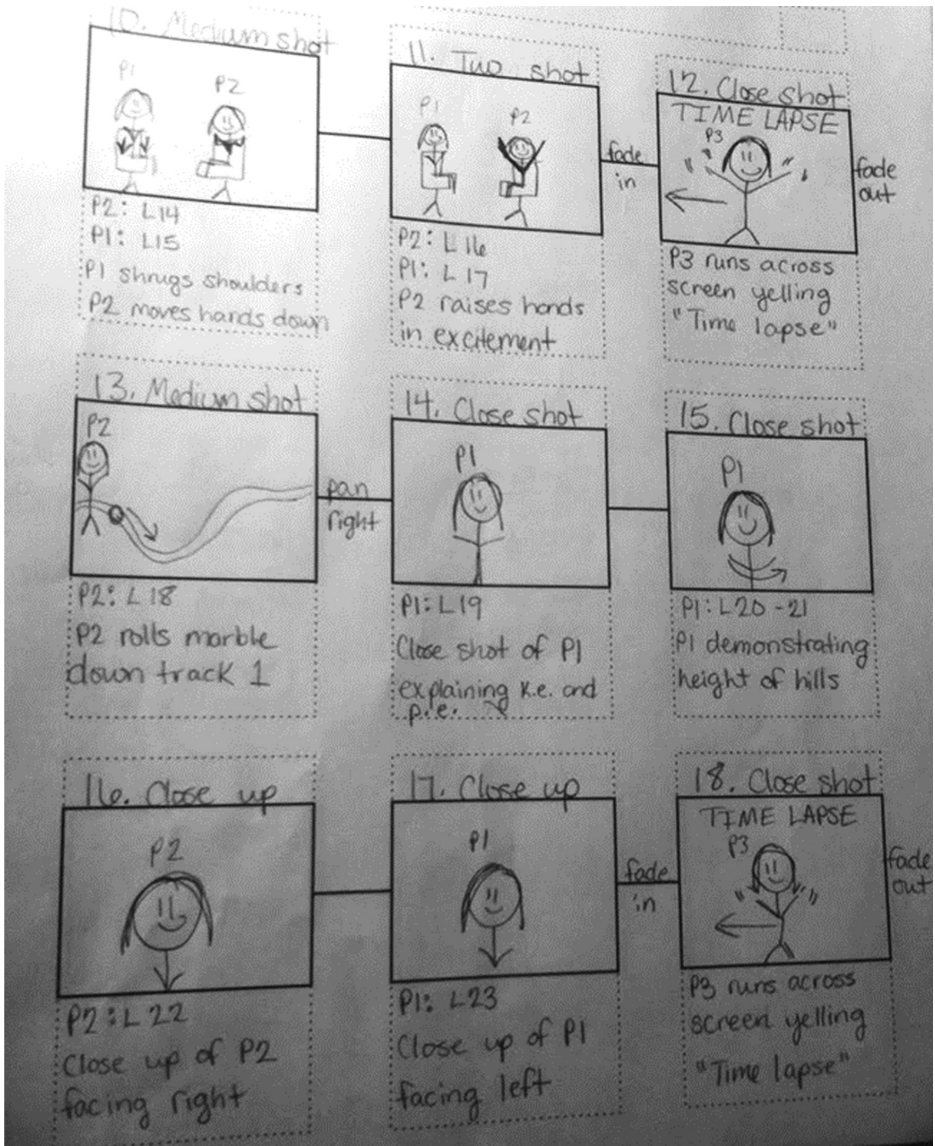 10. Medium shot
P1
P2
P2: L14
P1: L15
P1 shrugs shoulders
P2 moves hands down
11. Two shot
P1
P2
P2: L16
P1: L17
P2 raises hands
in excitement
fade
in
12. Close shot
TIME LAPSE
P3
fade
out
P3 runs across
screen yelling
"Time lapse"
13. Medium shot
P2
P2: L18
P2 rolls marble
down track 1
pan
right
14. Close shot
P1
P1: L19
Close shot of P1
explaining K.e. and
p.e.
15. Close shot
P1
P1: L20-21
P1 demonstrating
height of hills
16. Close up
P2
P2: L22
Close up of P2
facing right
17. Close up
P1
P1: L23
Close up of P1
facing left
fade
in
18. Close shot
TIME LAPSE
P3
fade
out
P3 runs across
screen yelling
"Time lapse"